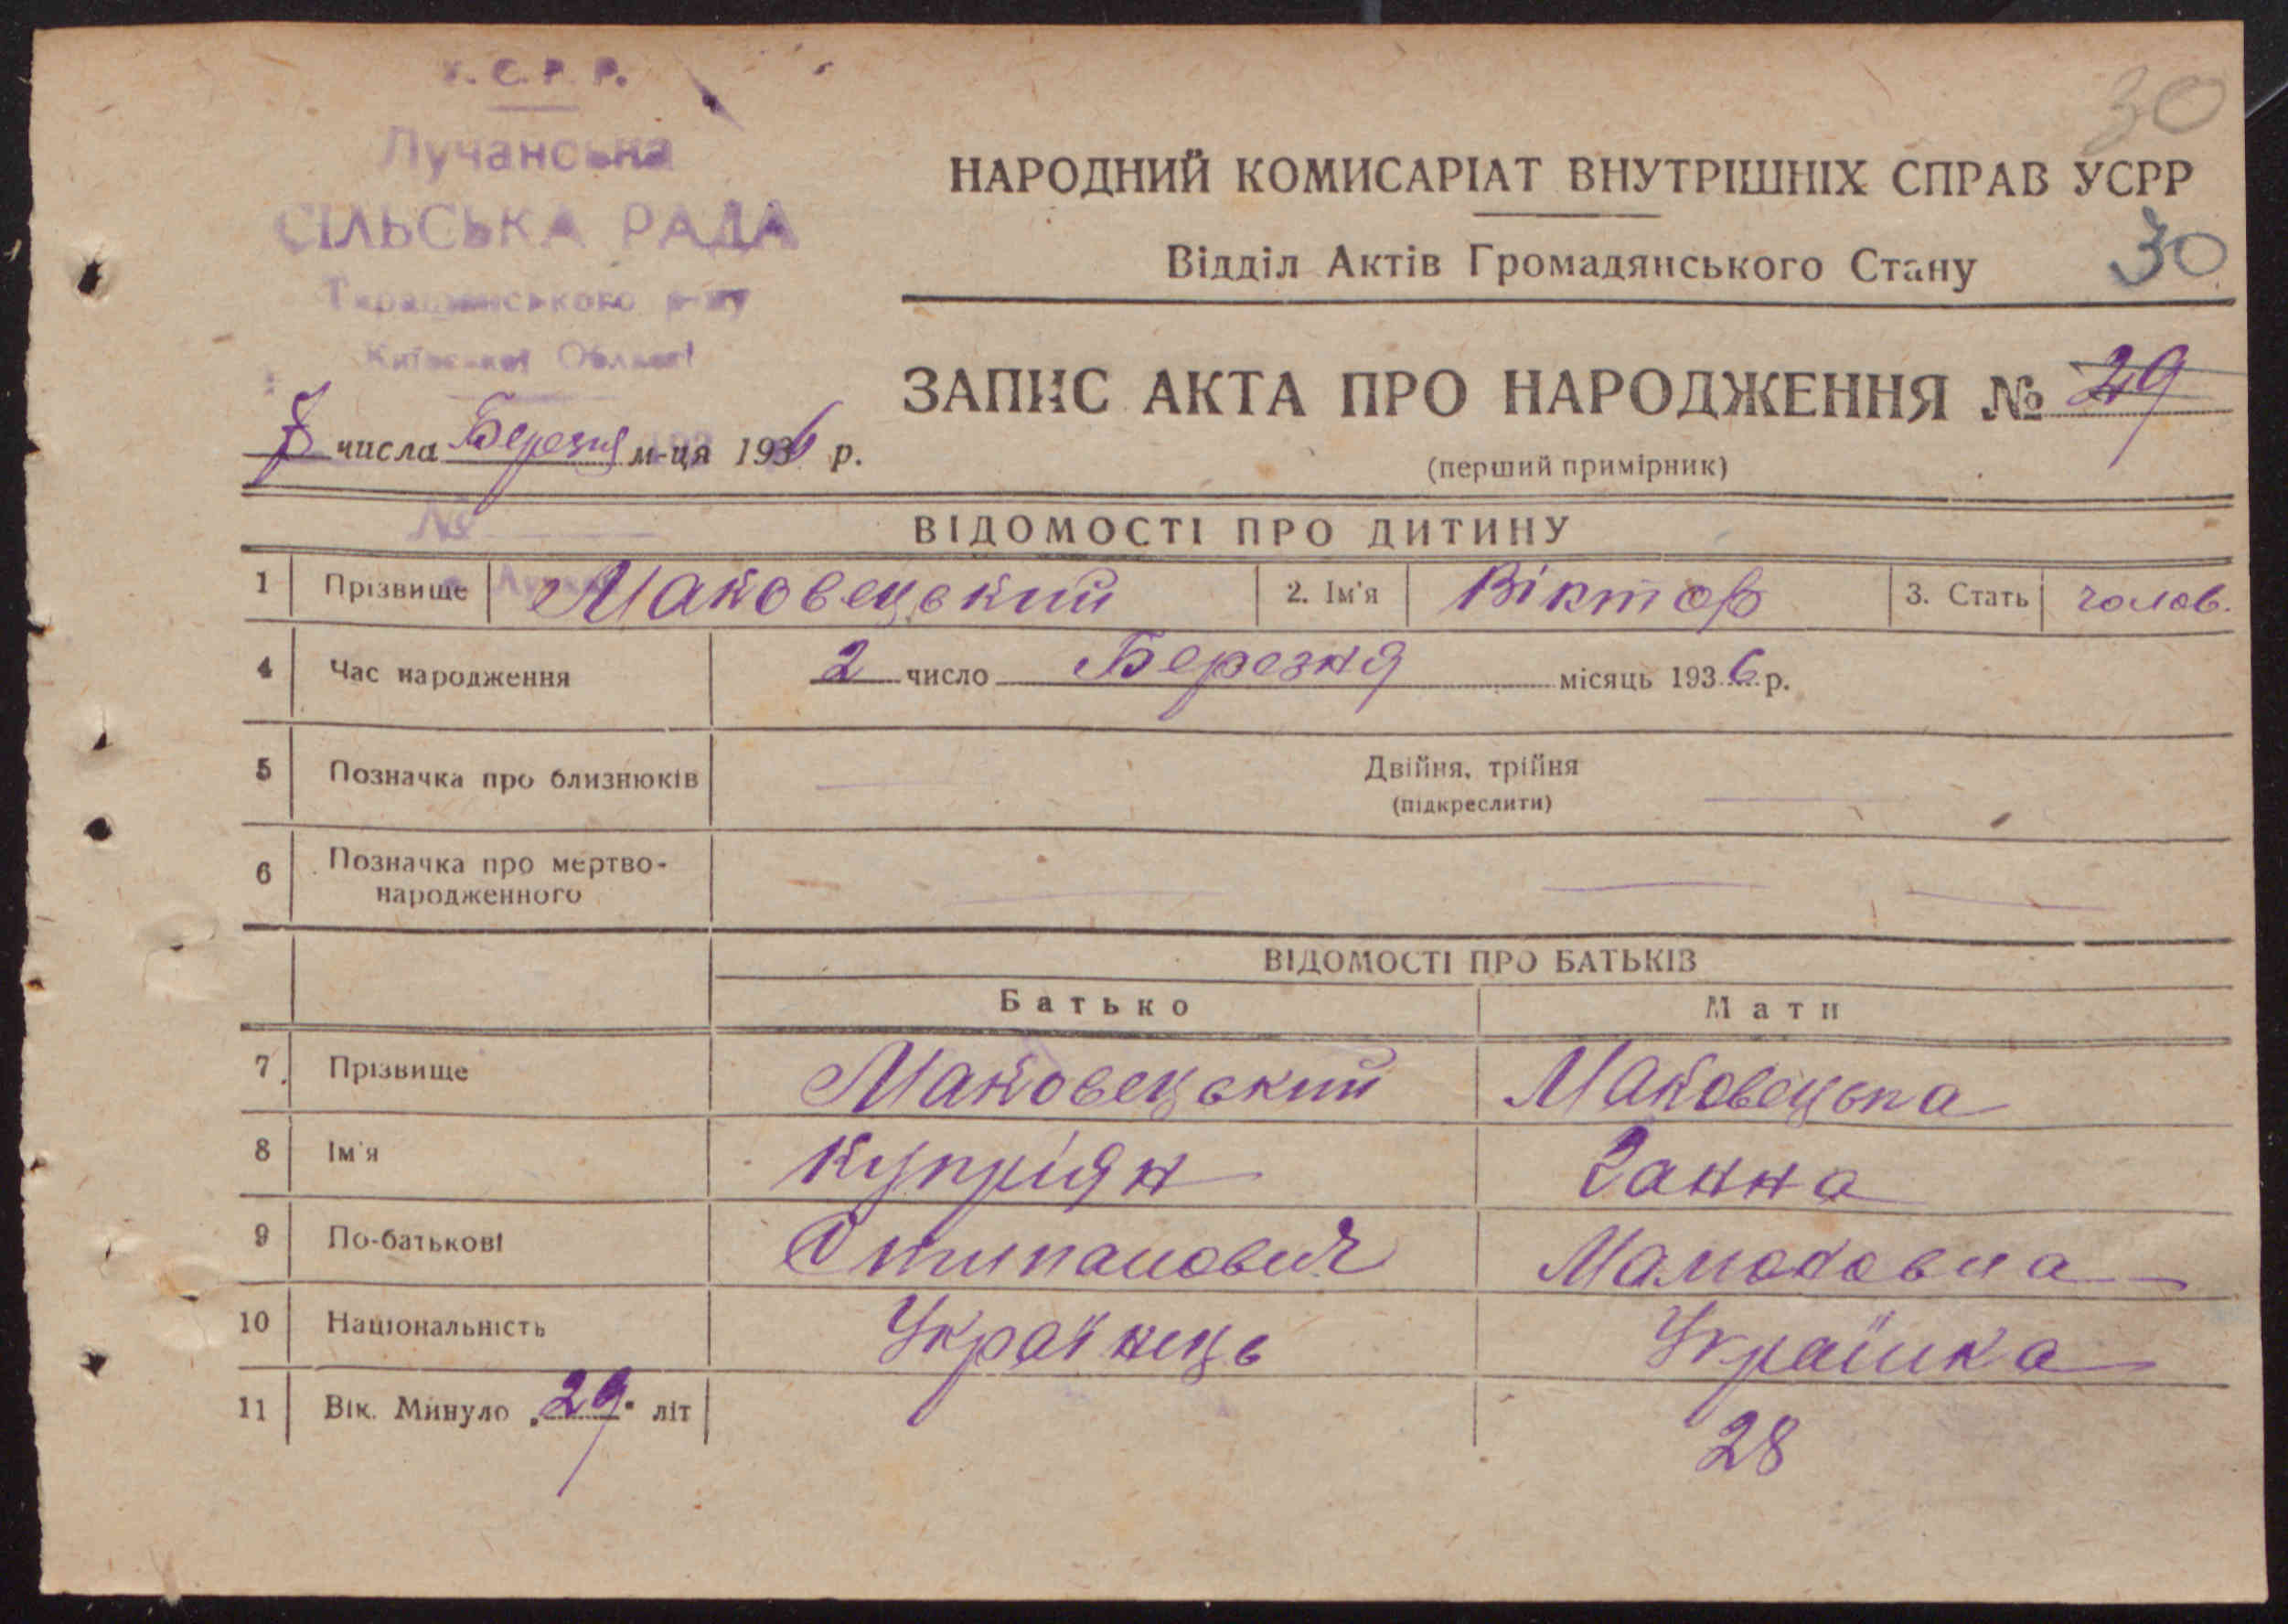 У.С.Р.Р.
Лучанська
СІЛЬСЬКА РАДА
Таращанського р-ну
Київської Області
30
НАРОДНИЙ КОМИСАРІАТ ВНУТРІШНІХ СПРАВ УСРР
Відділ Актів Громадянського Стану
30
ЗАПИС АКТА ПРО НАРОДЖЕННЯ № 29
числа Березня м-ця 1936 р.
(перший примірник)
№
ВІДОМОСТІ ПРО ДИТИНУ
1 Прізвище Маковецький 2. Ім'я Віктор 3. Стать чолов.
4 Час народження 2 число Березня місяць 1936 р.
5 Позначка про близнюків Двійня, трійня
(підкреслити)
6 Позначка про мертво-
народженного
ВІДОМОСТІ ПРО БАТЬКІВ
Батько Мати
7 Прізвище Маковецький Маковецька
8 Ім'я Купріян Ганна
9 По-батькові Стипанович
10 Національність Українець Українка
11 Вік. Минуло „29" літ 28